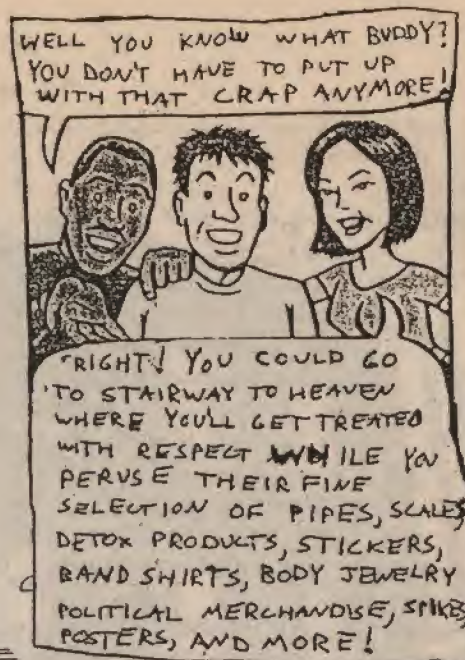 WELL YOU KNOW WHAT BUDDY?
YOU DON'T HAVE TO PUT UP
WITH THAT CRAP ANYMORE!
RIGHT! YOU COULD GO
TO STAIRWAY TO HEAVEN
WHERE YOU'LL GET TREATED
WITH RESPECT WHILE YOU
PERUSE THEIR FINE
SELECTION OF PIPES, SCALES,
DETOX PRODUCTS, STICKERS,
BAND SHIRTS, BODY JEWELRY
POLITICAL MERCHANDISE, SPIKES,
POSTERS, AND MORE!